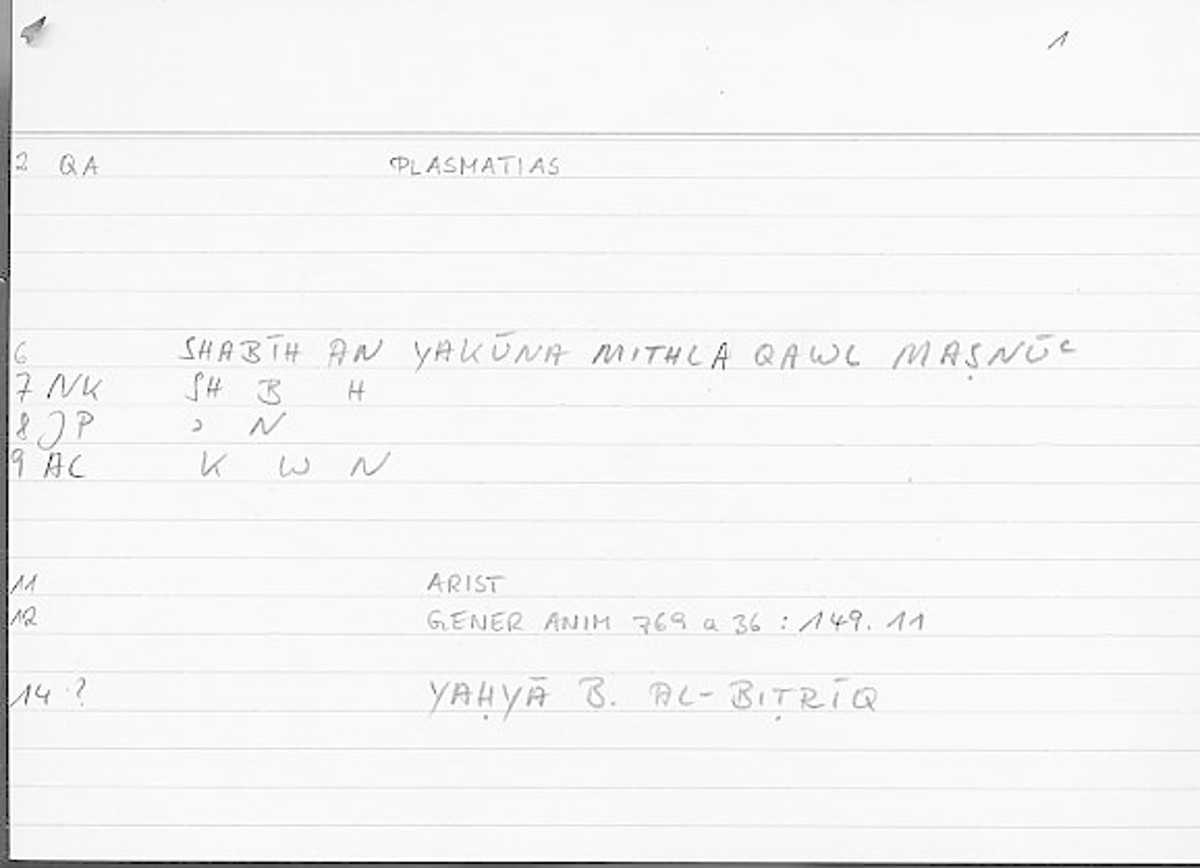 1
2 QA PLASMATIAS
6 SHABĪH AN YAKŪNA MITHLA QAWL MAṢNŪʿ
7 NK SH B H
8 JP ʾ N
9 AL K W N
11 ARIST
12 GENER ANIM 769 a 36 : 149. 11
14 ? YAḤYĀ B. AL-BIṬRĪQ